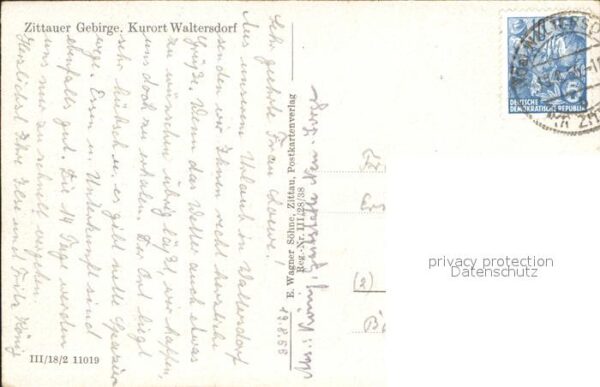 Zittauer Gebirge. Kurort Waltersdorf
Sehr geehrte Frau Loewe!
Aus unserem Urlaub in Waltersdorf
senden wir Ihnen recht herzliche
Grüße. Wenn das Wetter auch etwas
zu wünschen übrig läßt, wir hoffen,
uns doch zu erholen. Der Ort liegt
sehr hübsch u. es gibt nette Spazier
wege. Essen u. Unterkunft sind
ebenfalls gut. Die 14 Tage werden
uns nur zu schnell vergehen.
Herzlichst Ihre Ilse und Fritz König
III/18/2 11019
E. Wagner Söhne, Zittau, Postkartenverlag
Reg.-Nr. III/28/38
Abs.: König,
19.8.58
DEUTSCHE
DEMOKRATISCHE REPUBLIK
(2)
privacy protection
Datenschutz